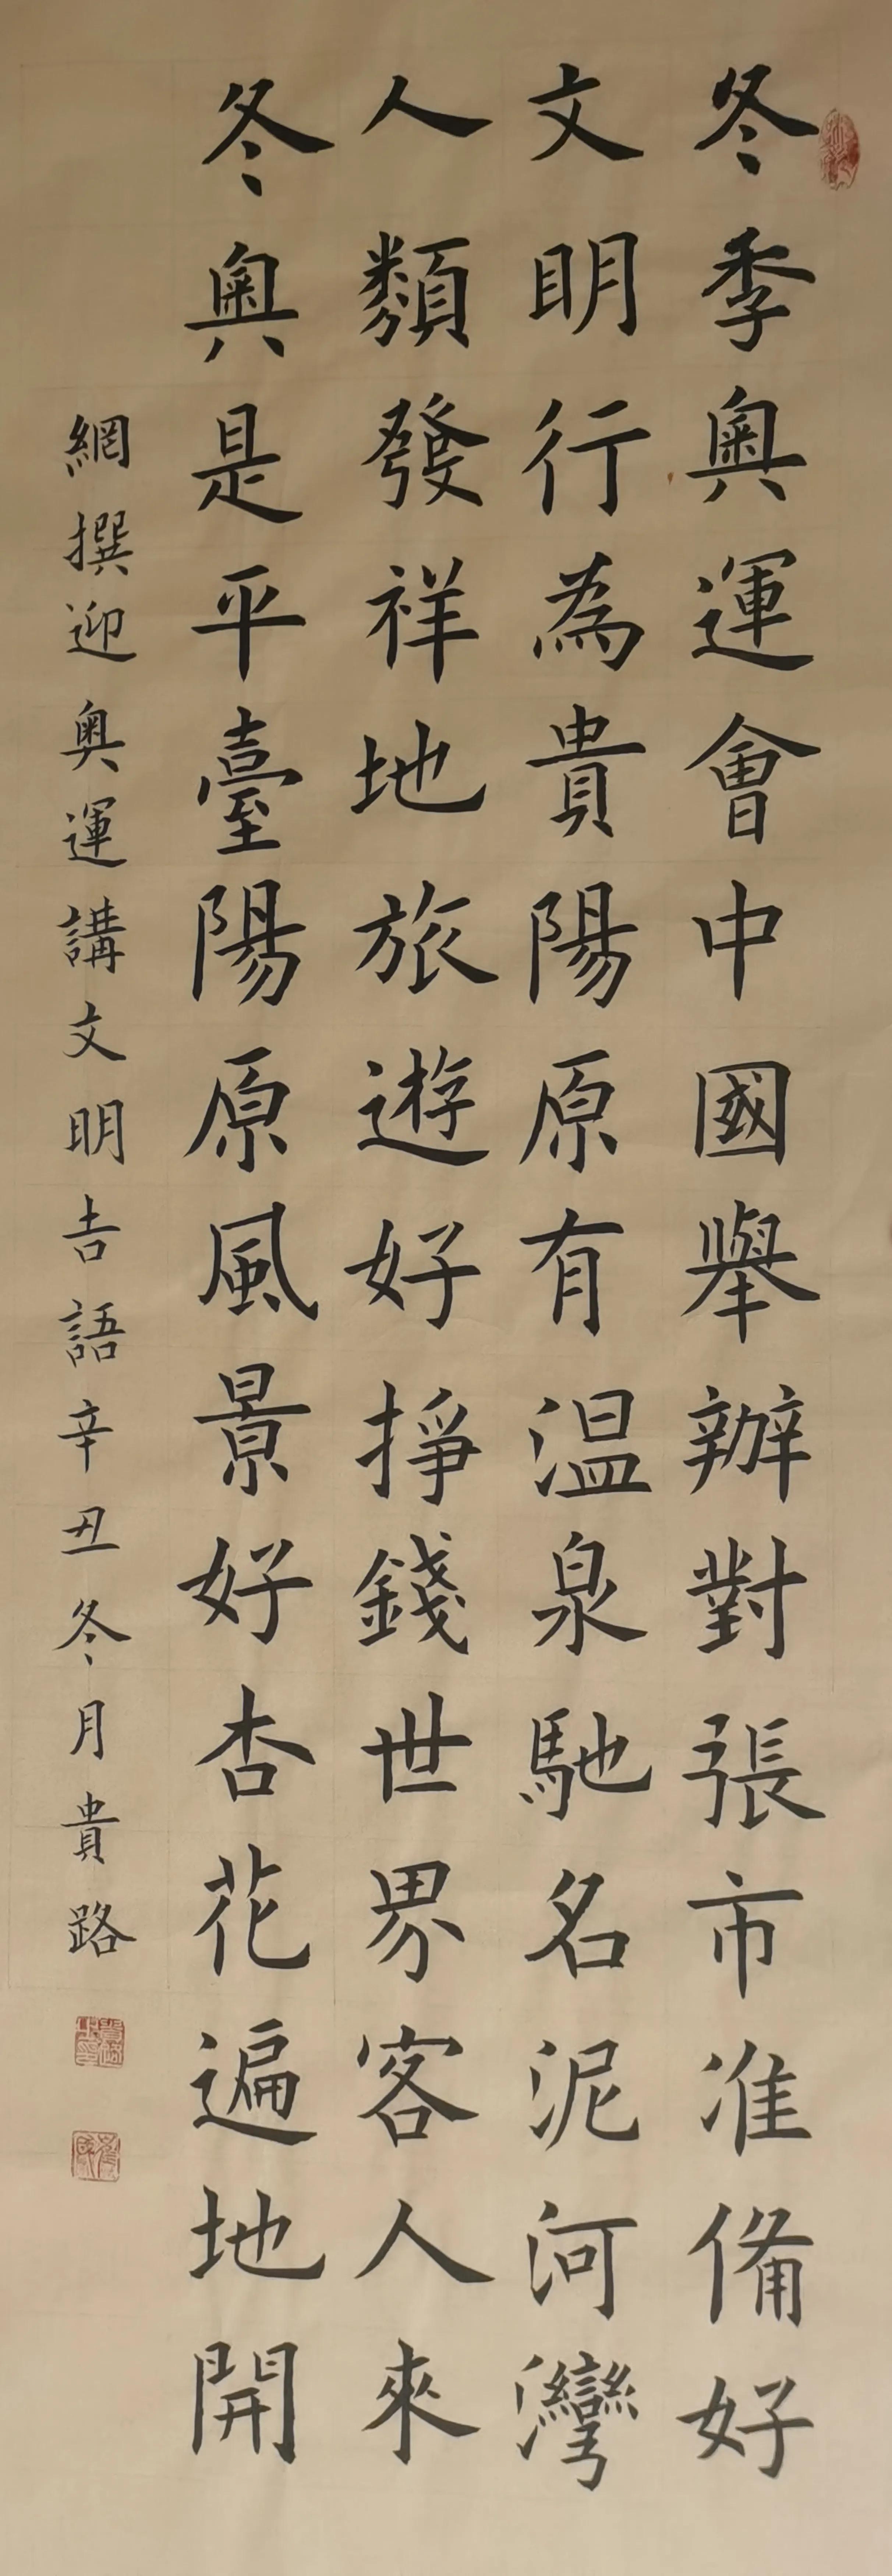 冬季奧運會中國舉辦對張市准備好
文明行為貴陽原有温泉馳名泥河灣
人類發祥地旅遊好掙錢世界客人來
冬奧是平臺陽原風景好杏花遍地開
網撰迎奧運講文明吉語辛丑冬月貴路